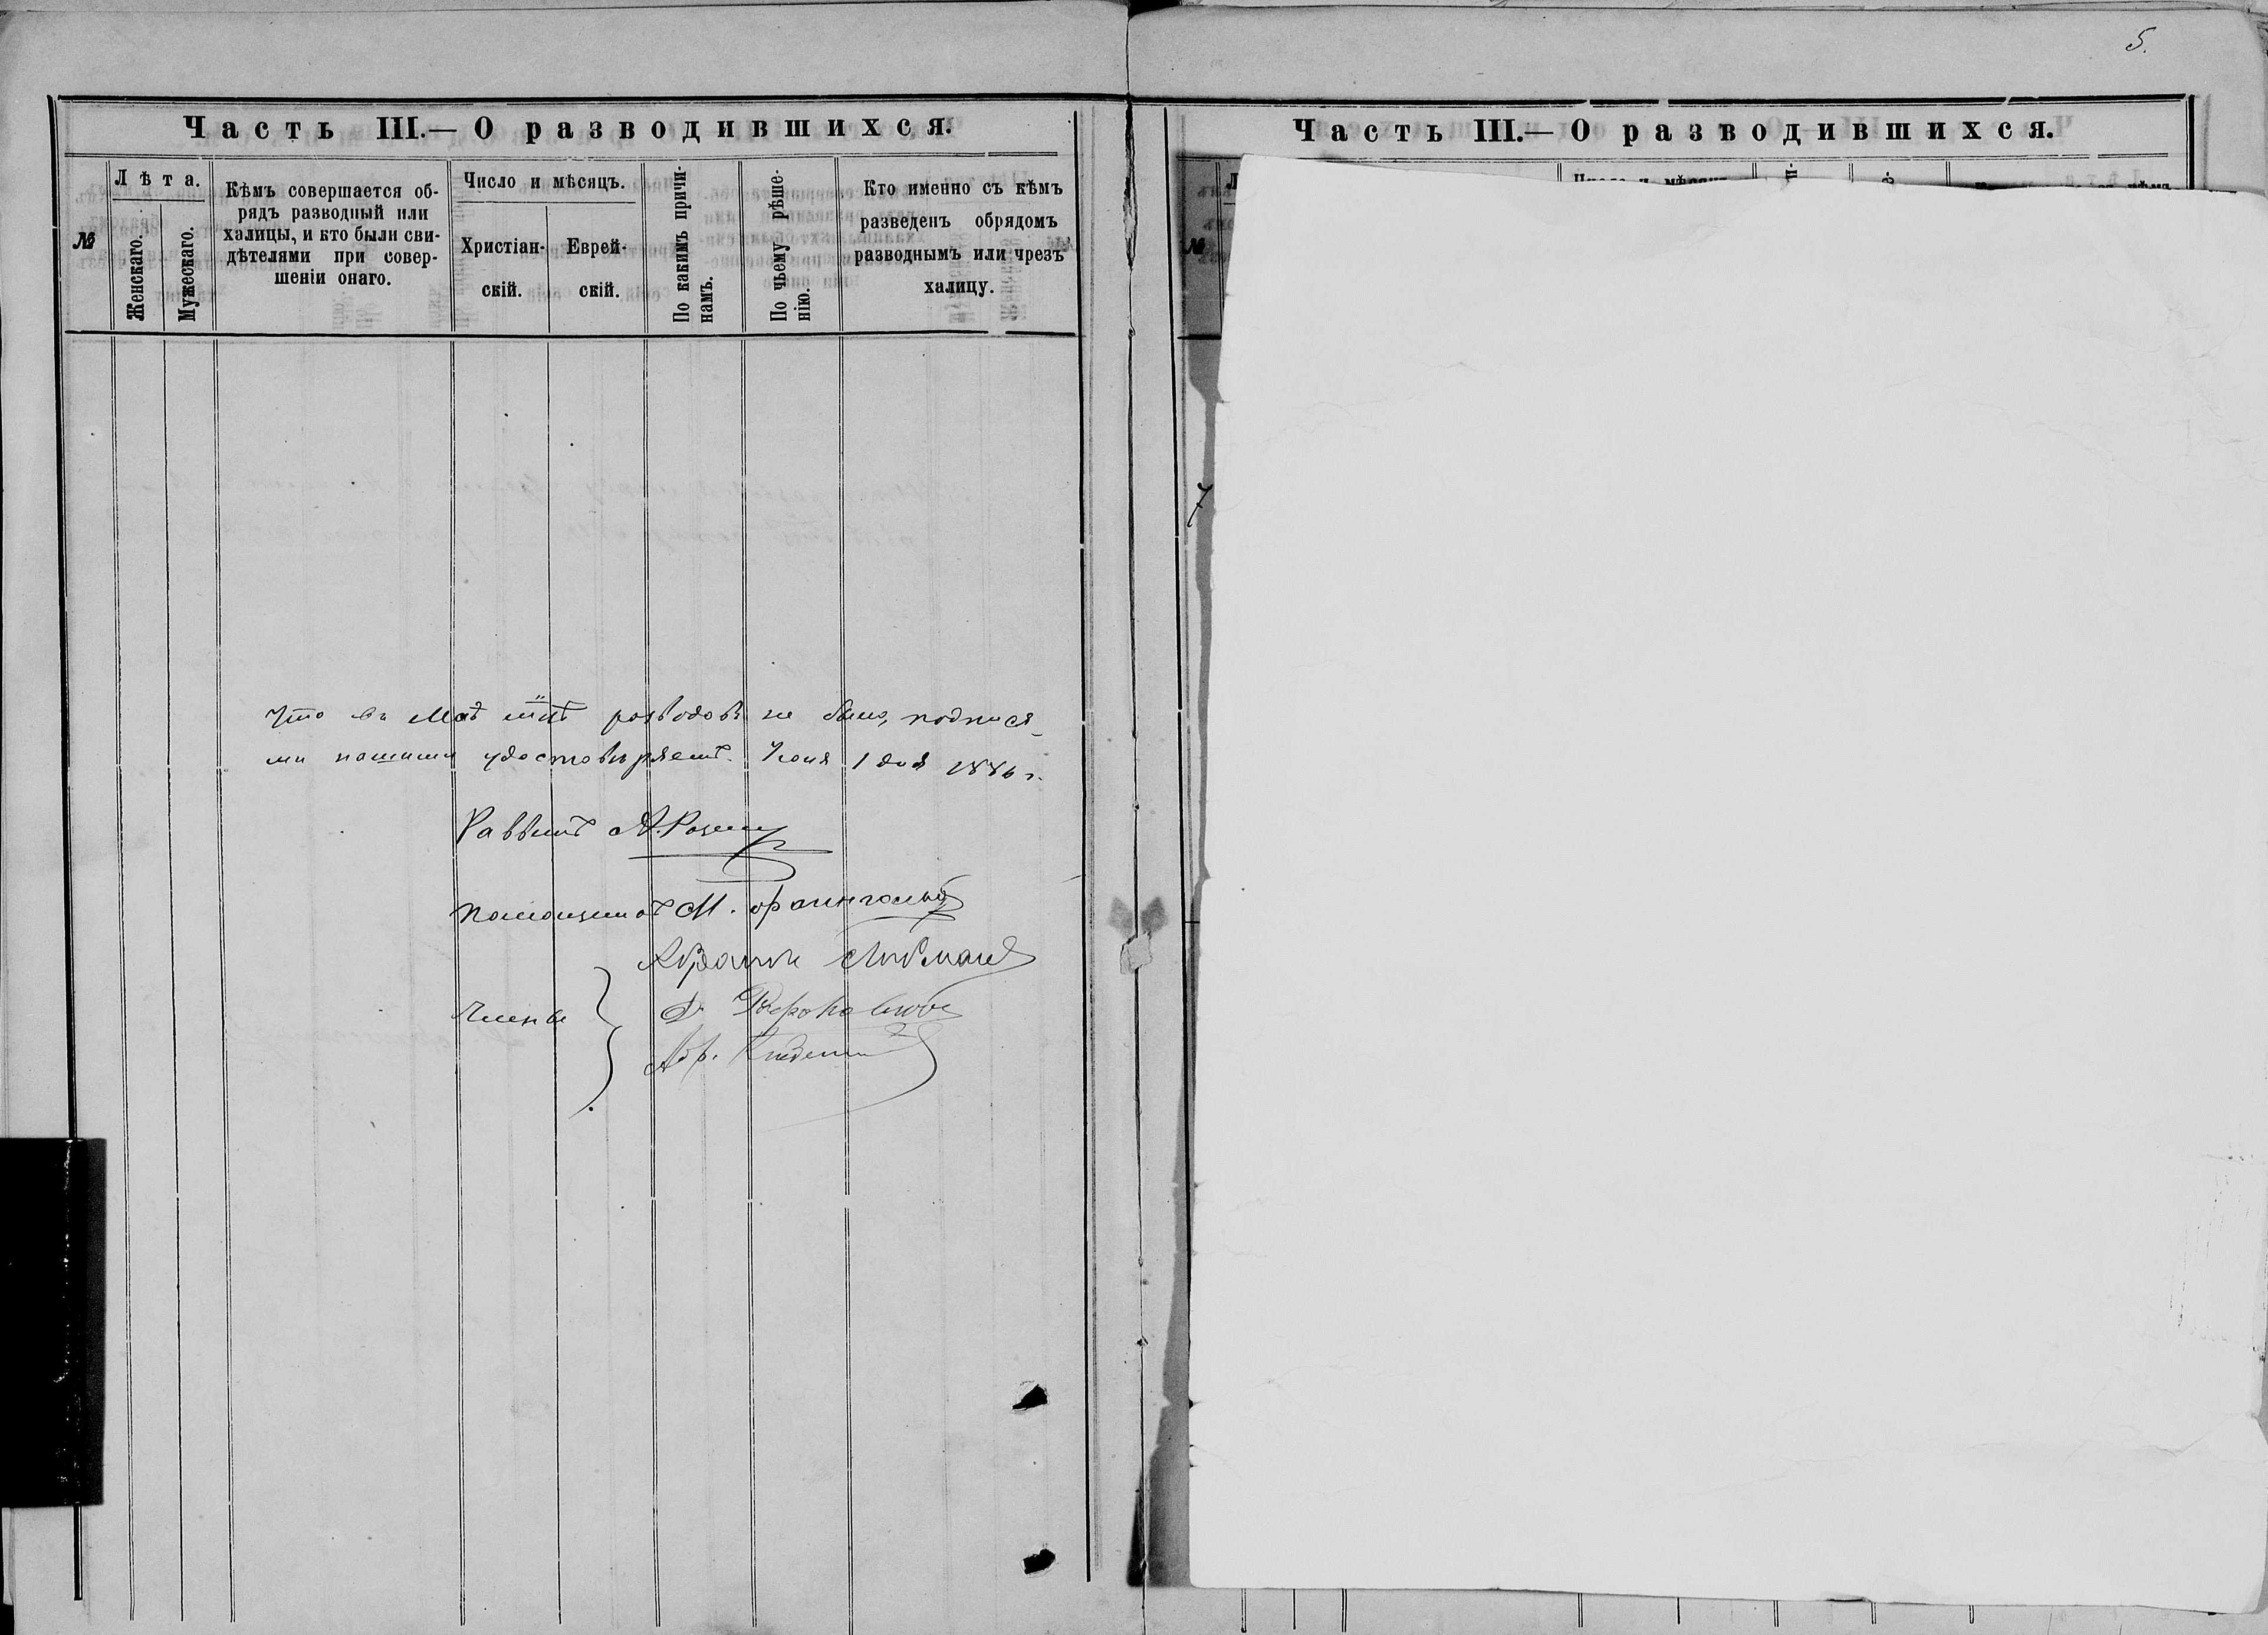 5.
Часть III.— О разводившихся.
№
Лѣта.
Женскаго.
Мужескаго.
Кѣмъ совершается об-
рядъ разводный или
халицы, и кто были сви-
дѣтелями при совер-
шеніи онаго.
Число и мѣсяцъ.
Христіан-
скій.
Еврей-
скій.
По какимъ причи-
намъ.
По чьему рѣше-
нію.
Кто именно съ кѣмъ
разведенъ обрядомъ
разводнымъ или чрезъ
халицу.
Что въ Маѣ розводовъ не было, подпися-
ми нашими удостовѣряемъ. Іюня 1 дня 1886 г.
Раввинъ А.
Помощникъ М.
Члены
Абр.
Часть III.— О разводившихся.
№
7